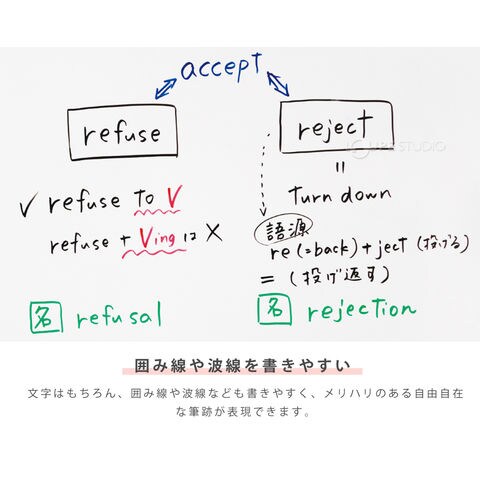 accept
refuse
reject
✓ refuse to V
refuse + Ving は ×
名 refusal
=
Turn down
語源
re(=back)+ject(投げる)
=(投げ返す)
名 rejection
囲み線や波線を書きやすい
文字はもちろん、囲み線や波線なども書きやすく、メリハリのある自由自在
な筆跡が表現できます。